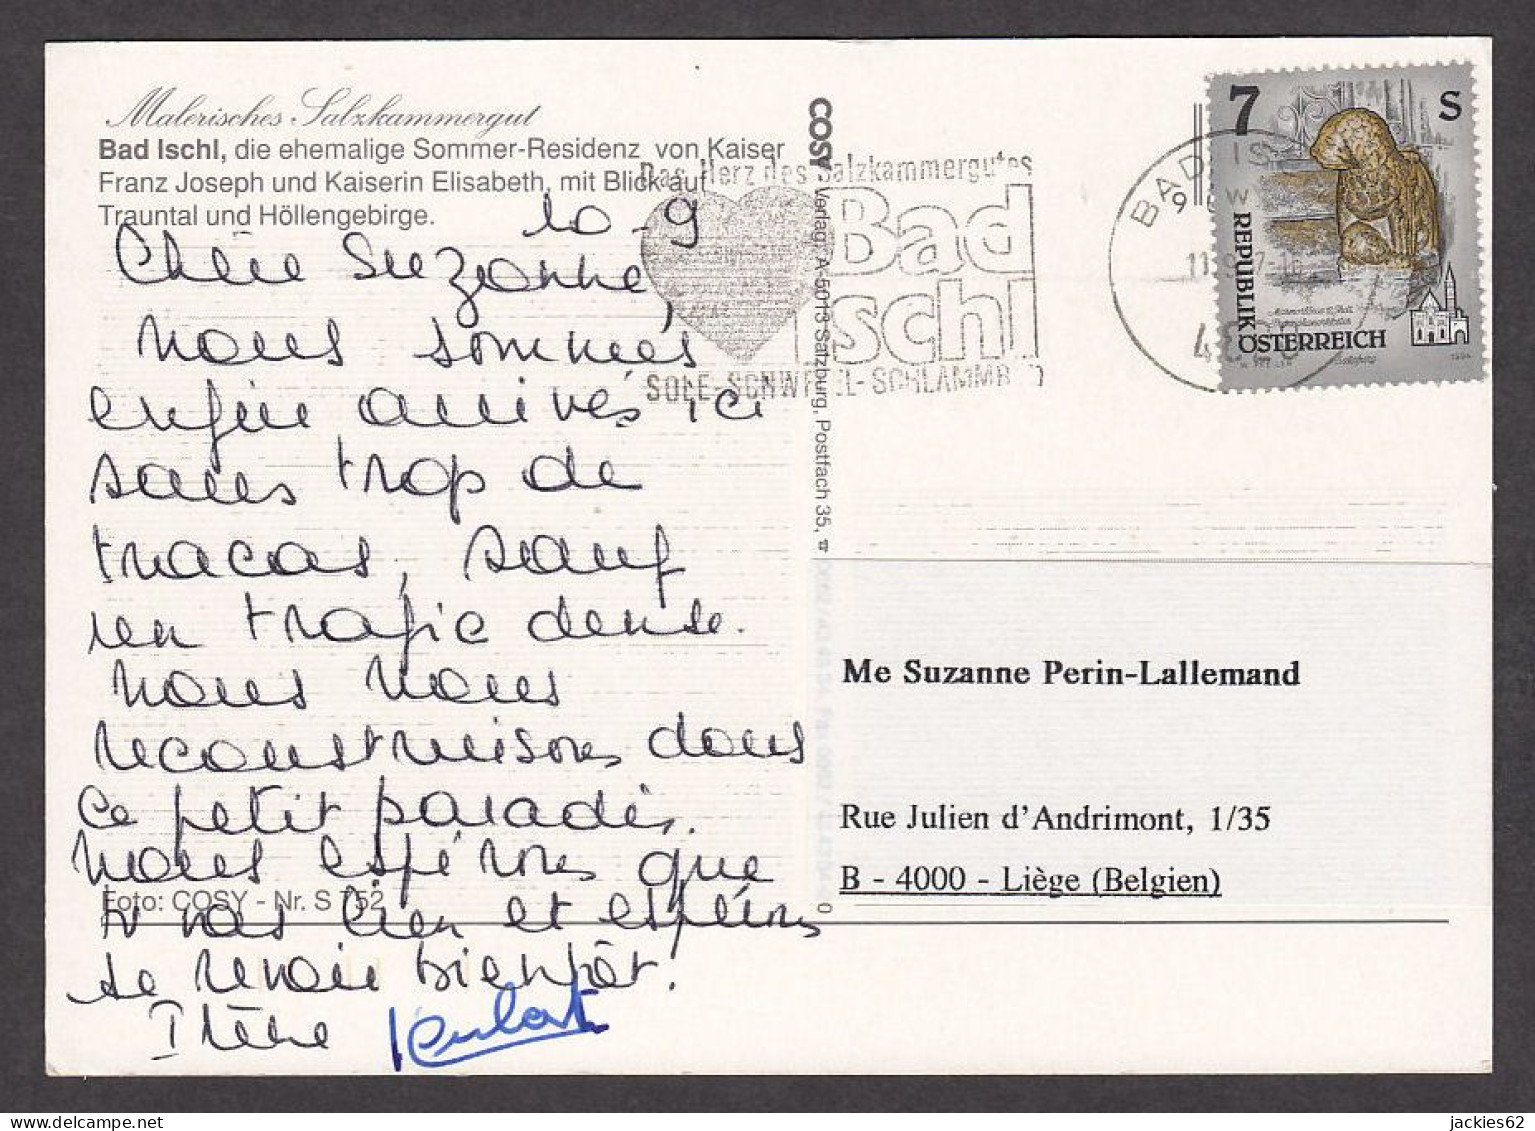 Malerisches Salzkammergut
Bad Ischl, die ehemalige Sommer-Residenz von Kaiser
Franz Joseph und Kaiserin Elisabeth, mit Blick auf
Trauntal und Höllengebirge.
10-9
Chère Suzanne,
nous sommes
enfin arrivés ici
sans trop de
tracas, sauf
un trafic dense.
Nous nous
reconstruisons dans
ce petit paradis.
Nous espérons que
tu vas bien et espérons
te revoir bientôt.
Irène
Foto: COSY - Nr. S 752
COSY Verlag, A-5013 Salzburg, Postfach 35,
Das Herz des Salzkammergutes
Bad
Ischl
SOLE-SCHWEFEL-SCHLAMMBAD
BAD IS
11.9.97-16
48
7 S
REPUBLIK
ÖSTERREICH
1994
Me Suzanne Perin-Lallemand
Rue Julien d'Andrimont, 1/35
B - 4000 - Liège (Belgien)
jackies62